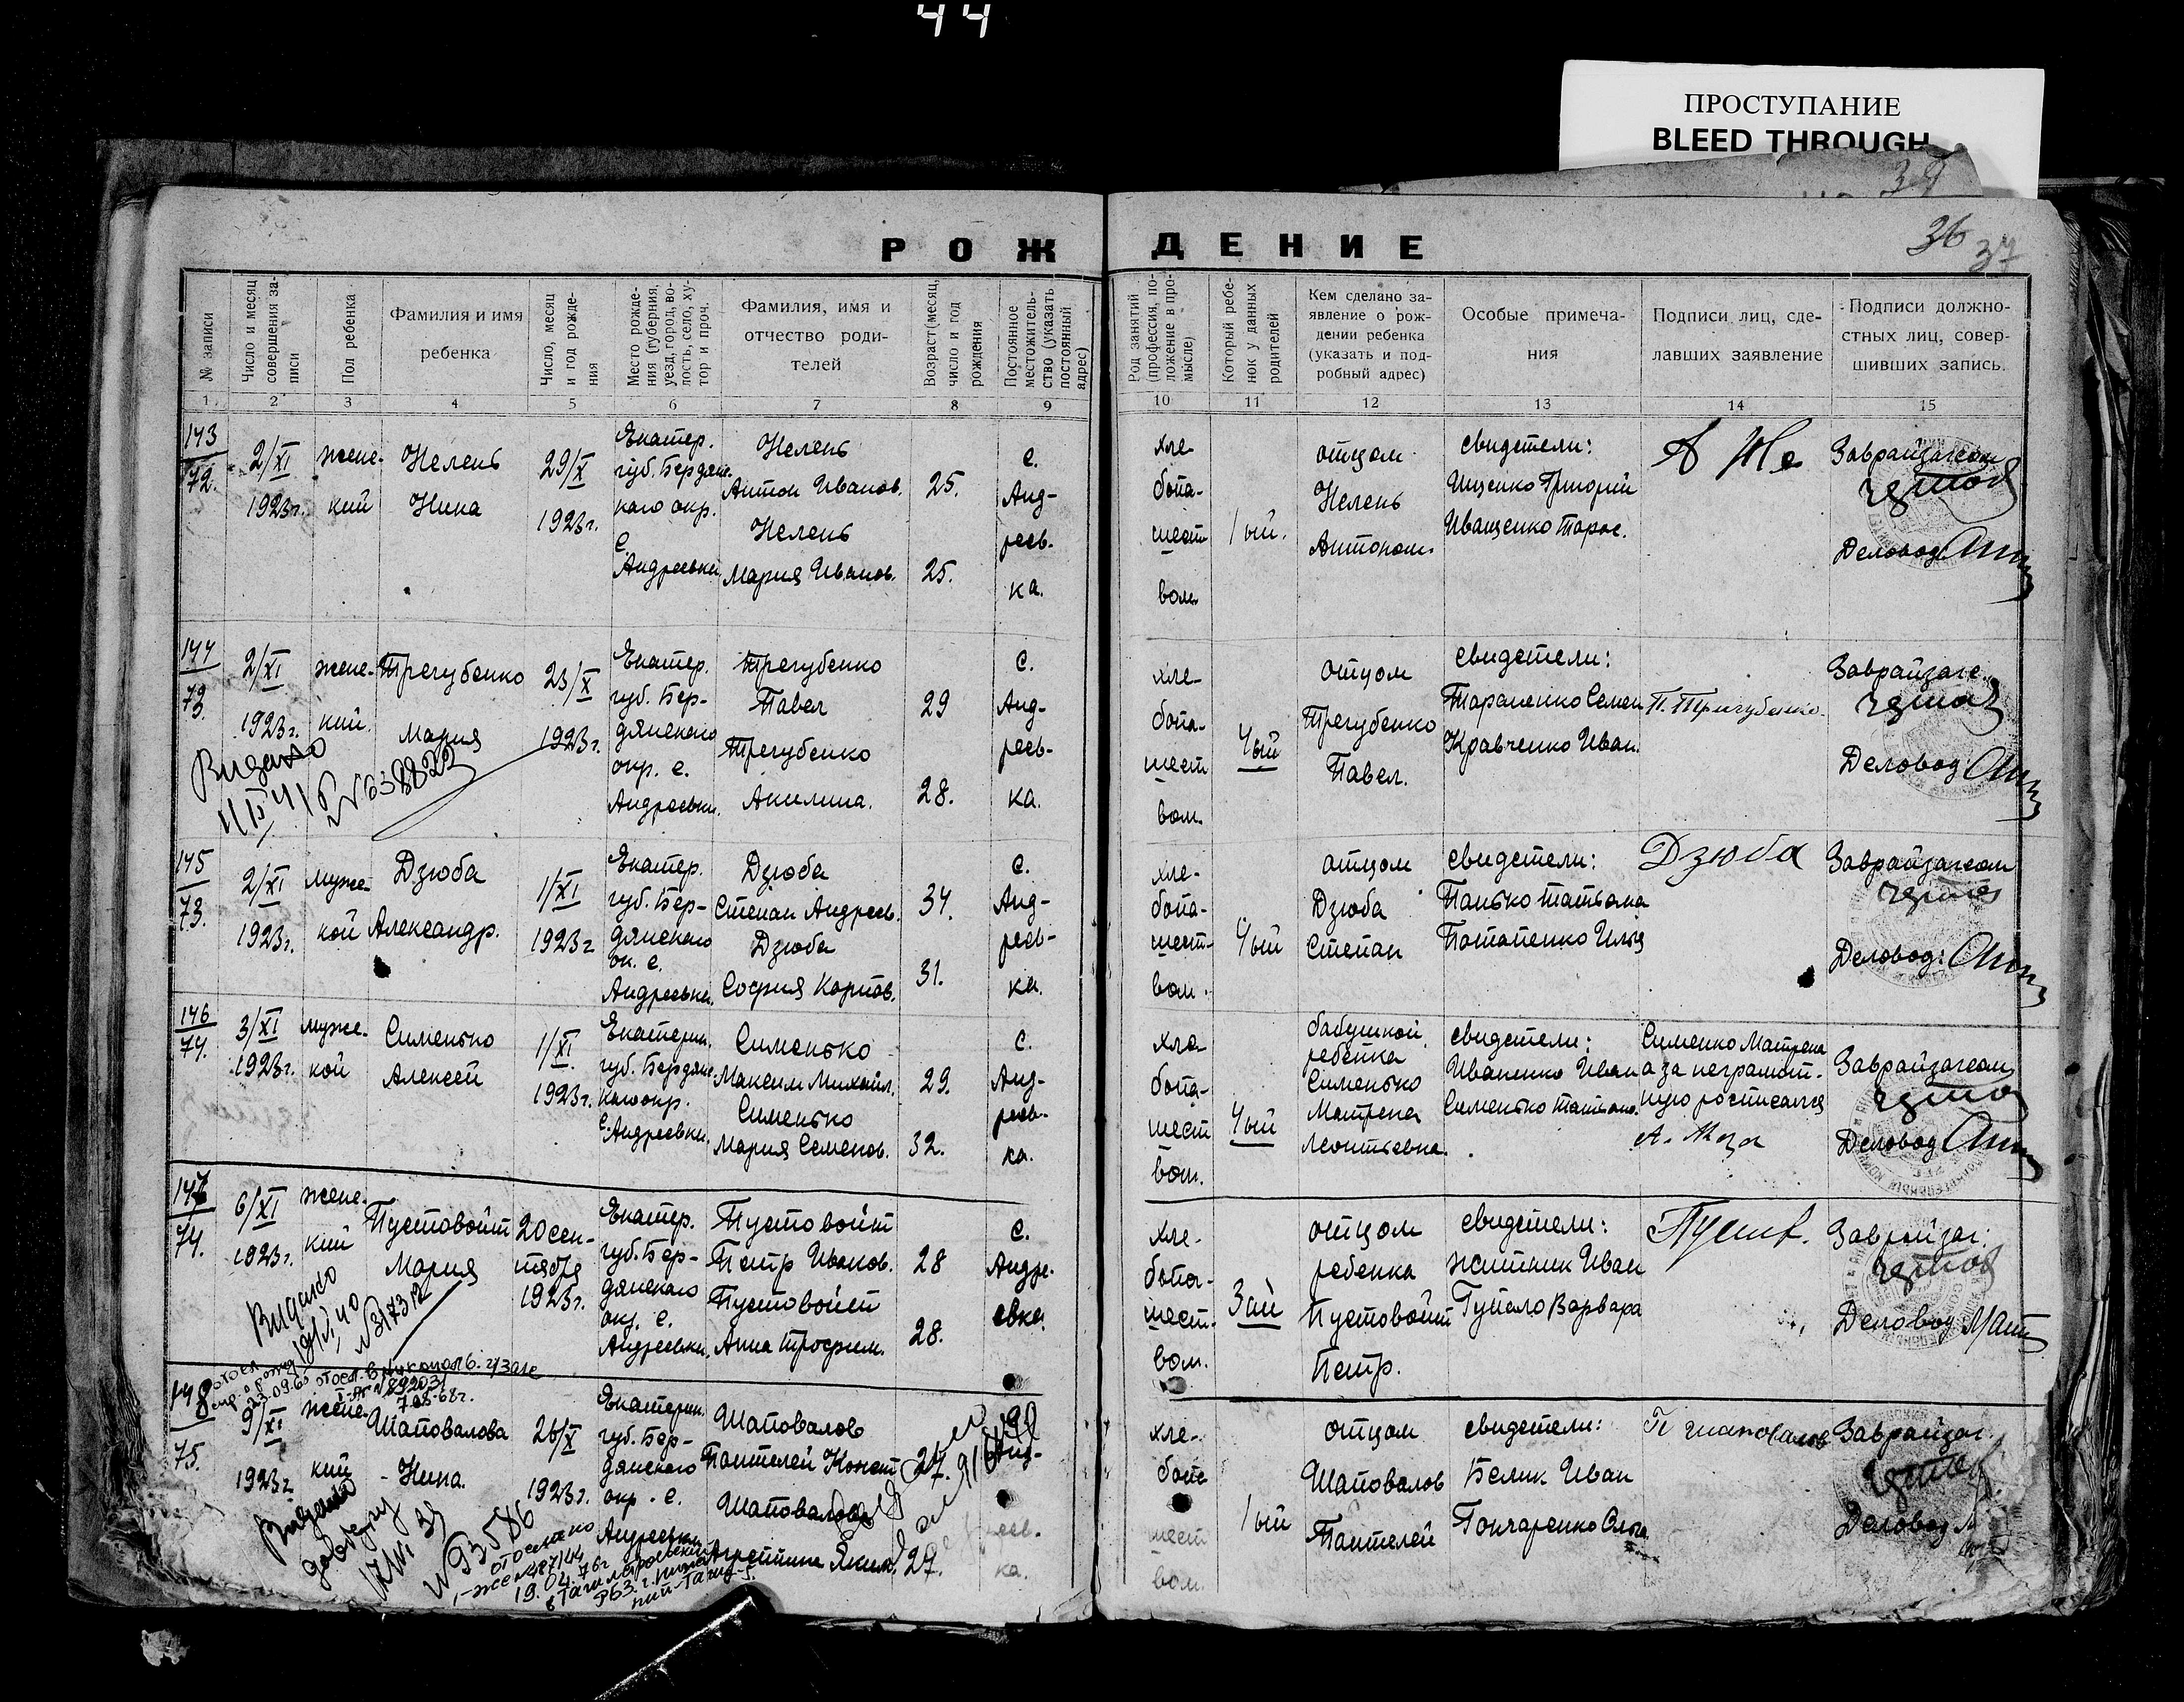 44
ПРОСТУПАНИЕ
BLEED THROUGH
39
36
37
РОЖДЕНИЕ
№ записи
Число и месяц совершения записи
Пол ребенка
Фамилия и имя ребенка
Число, месяц и год рождения
Место рождения (губерния, уезд, город, волость, село, хутор и проч.
Фамилия, имя и отчество родителей
Возраст (месяц, число и год рождения
Постоянное местожительство (указать постоянный адрес)
Род занятий (профессия, положение в промысле)
Который ребенок у данных родителей
Кем сделано заявление о рождении ребенка (указать и подробный адрес)
Особые примечания
Подписи лиц, сделавших заявление
Подписи должностных лиц, совершивших запись.
1 2 3 4 5 6 7 8 9 10 11 12 13 14 15
143
72.
2/XI
1923г.
женский
Нелень
Нина
29/X
1923г.
Екатер.
губ. Бердянского окр.
с.
Андреевки
Нелень
Антон Иванов.
25.
Нелень
Мария Иванов.
25.
с.
Андреевка.
хлебопашеством
1ый.
отцом
Нелень
Антоном.
свидетели:
Ищенко Григорий
Иващенко Тарас.
А Не
Заврайзагсом
Деловод
144
73.
2/XI
1923г.
женский
Трегубенко
Мария
23/X
1923г.
Екатер.
губ. Бердянского
окр. с.
Андреевки.
Трегубенко
Павел
29
Трегубенко
Акилина.
28.
с.
Андреевка.
хлебопашеством.
4ый
отцом
Трегубенко
Павел.
свидетели:
Тараненко Семен
Кравченко Иван.
П. Тригубенко.
Заврайзагс.
Деловод
Видано
№638823
145
73.
2/XI
1923г.
мужской
Дзюба
Александр.
1/XI
1923г
Екатер.
губ. Бердянского
ок. с.
Андреевки.
Дзюба
Степан Андреев.
34.
Дзюба
София Карпов.
31.
с.
Андреевка.
хлебопашеством.
4ый
отцом
Дзюба
Степан
свидетели:
Панько Татьяна
Потапенко Илья
Дзюба
Заврайзагсом
Деловод:
146
74.
3/XI
1923г.
мужской
Сименько
Алексей
1/XI
1923г.
Екатерин.
губ. Бердянского окр.
с. Андреевки.
Сименько
Максим Михайл.
29.
Сименько
Мария Семенов.
32.
с.
Андреевка.
хлебопашеством.
4ый
бабушкой
ребенка
Сименько
Матрена
Леонтьевна.
свидетели:
Иваненко Иван
Сименько Татьяна.
Сименко Матрена
а за неграмотную росписался
Заврайзагсом
Деловод
147
74.
6/XI
1923г.
женский
Пустовойт
Мария
20 сентября
1923г.
Екатер.
губ. Бердянского
окр. с.
Андреевки.
Пустовойт
Петр Иванов.
28
Пустовойт
Анна Трофим.
28.
с.
Андреевка.
хлебопашеством.
3ий
отцом
ребенка
Пустовойт
Петр.
свидетели:
Житник Иван
Гупало Варвара
Пустов.
Заврайзаг.
Деловод
Видано
19/VI 40
№317312
148
75.
9/XI
1923г
женский
Шаповалова
Нина.
26/X
1923г.
Екатерин.
губ. Бердянского
окр. с.
Андреевки
Шаповалов
Пантелей Конст
27.
Шаповалова
Агрепина Яким.
27.
Андреевка.
хлебопашеством.
1ый
отцом
Шаповалов
Пантелей
свидетели:
Белик Иван
Гончаренко Ольга
П Шаповалов
Заврайзаг.
Деловод
Видана
довідку
№93586
отослано
19.04.76г